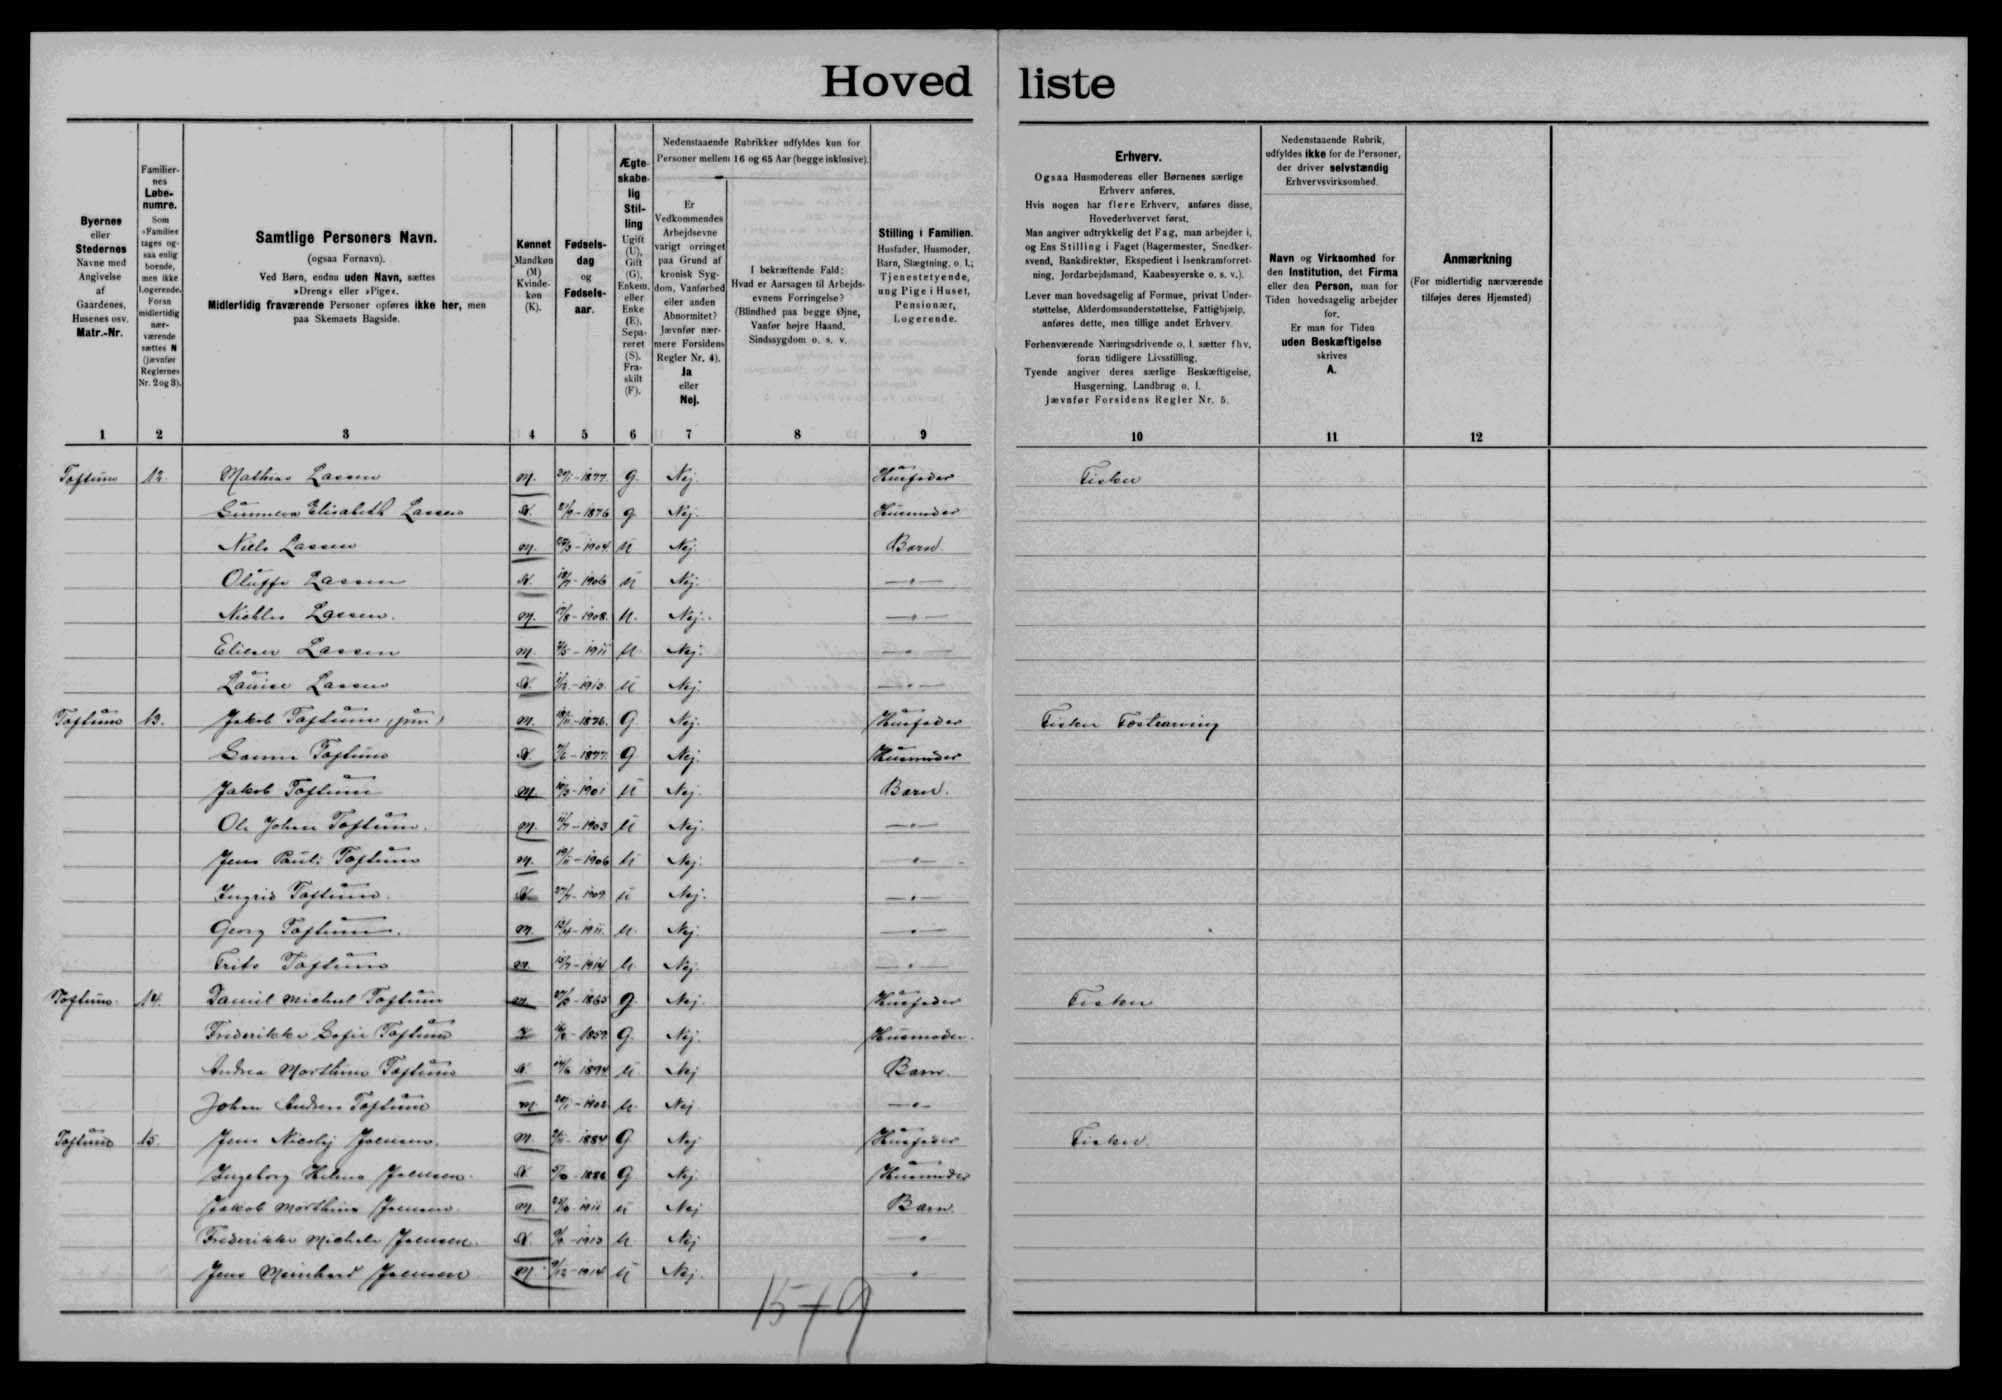 Hovedliste
Byernes
eller
Stedernes
Navne med
Angivelse
af
Gaardenes,
Husenes osv.
Matr.-Nr.
Familier-
nes
Løbe-
numre.
Som
»Familie«
tages og-
saa enlig
boende,
men ikke
Logerende.
Foran
midlertidig
nær-
værende
sættes N
(jævnfør
Reglernes
Nr. 2 og 3).
Samtlige Personers Navn.
(ogsaa Fornavn).
Ved Børn, endnu uden Navn, sættes
»Dreng« eller »Pige«.
Midlertidig fraværende Personer opføres ikke her, men
paa Skemaets Bagside.
Kønnet
Mandkøn
(M)
Kvinde-
køn
(K).
Fødsels-
dag
og
Fødsels-
aar.
Ægte-
skabe-
lig
Stil-
ling
Ugift
(U),
Gift
(G),
Enkem.
eller
Enke
(E),
Sepa-
reret
(S),
Fra-
skilt
(F).
Nedenstaaende Rubrikker udfyldes kun for
Personer mellem 16 og 65 Aar (begge inklusive).
Er
Vedkommendes
Arbejdsevne
varigt forringet
paa Grund af
kronisk Syg-
dom, Vanførhed
eller anden
Abnormitet?
Jævnfør nær-
mere Forsidens
Regler Nr. 4).
Ja
eller
Nej.
I bekræftende Fald:
Hvad er Aarsagen til Arbejds-
evnens Forringelse?
(Blindhed paa begge Øjne,
Vanfør højre Haand,
Sindssygdom o. s. v.
Stilling i Familien.
Husfader, Husmoder,
Barn, Slægtning, o. l.;
Tjenestetyende,
ung Pige i Huset,
Pensionær,
Logerende.
Erhverv.
Ogsaa Husmoderens eller Børnenes særlige
Erhverv anføres.
Hvis nogen har flere Erhverv, anføres disse,
Hovederhvervet først.
Man angiver udtrykkelig det Fag, man arbejder i,
og Ens Stilling i Faget (Bagermester, Snedker-
svend, Bankdirektør, Ekspedient i Isenkramforret-
ning, Jordarbejdsmand, Kaabesyerske o. s. v.).
Lever man hovedsagelig af Formue, privat Under-
støttelse, Alderdomsunderstøttelse, Fattighjælp,
anføres dette, men tillige andet Erhverv.
Forhenværende Næringsdrivende o. l. sætter fhv.
foran tidligere Livsstilling.
Tyende angiver deres særlige Beskæftigelse,
Husgerning, Landbrug o. l.
Jævnfør Forsidens Regler Nr. 5.
Nedenstaaende Rubrik,
udfyldes ikke for de Personer,
der driver selvstændig
Erhvervsvirksomhed.
Navn og Virksomhed for
den Institution, det Firma
eller den Person, man for
Tiden hovedsagelig arbejder
for.
Er man for Tiden
uden Beskæftigelse
skrives
A.
Anmærkning
(For midlertidig nærværende
tilføjes deres Hjemsted)
1 2 3 4 5 6 7 8 9 10 11 12
Toftum 12. Mathias Lassen M. 1877. G. Nej. Husfader Fisker
Elisabeth Lassen K. 1876 G. Nej. Husmoder
Niels Lassen M. 1904 U Nej. Barn.
Lassen K. 1906 U Nej. —"—
Lassen. M. 1908. U. Nej. —"—
Elieser Lassen M. 1911 U Nej. —"—
Lauise Lassen K. 1913. U Nej. —"—
Toftum 13. Jakob Toftum (jun) M. 1876. G Nej. Husfader Fisker
Sanna Toftum K. 1877. G Nej. Husmoder
Jakob Toftum M. 1901 U Nej. Barn.
Ole Johan Toftum. M. 1903 U Nej. —"—
Jens Pauli Toftum M. 1906 U Nej. —"—
Ingrid Toftum. K 1909. U Nej. —"—
Georg Toftum. M. 1911. U. Nej —"—
Frits Toftum M. 1914 U. Nej. —"—
Toftum. 14. Daniel Michael Toftum M 1865 G. Nej. Husfader Fisker
Frederikke Sofie Toftum K 1859. G. Nej. Husmoder.
Andrea Morthine Toftum K. 1894 U Nej Barn.
Johan Andreas Toftum M. 1902 U. Nej. —"—
Toftum 15. Jens Nicolaj Joensen. M. 1884 G. Nej Husfader Fisker.
Ingeborg Helena Joensen. K. G Nej. Husmoder
Jakob Morthine Joensen. M. 1911 U Nej Barn.
Frederikke Michele Joensen. K. 1913 U. Nej —"
Jens Meinhard Joensen M. 1914 U Nej. "
15+9